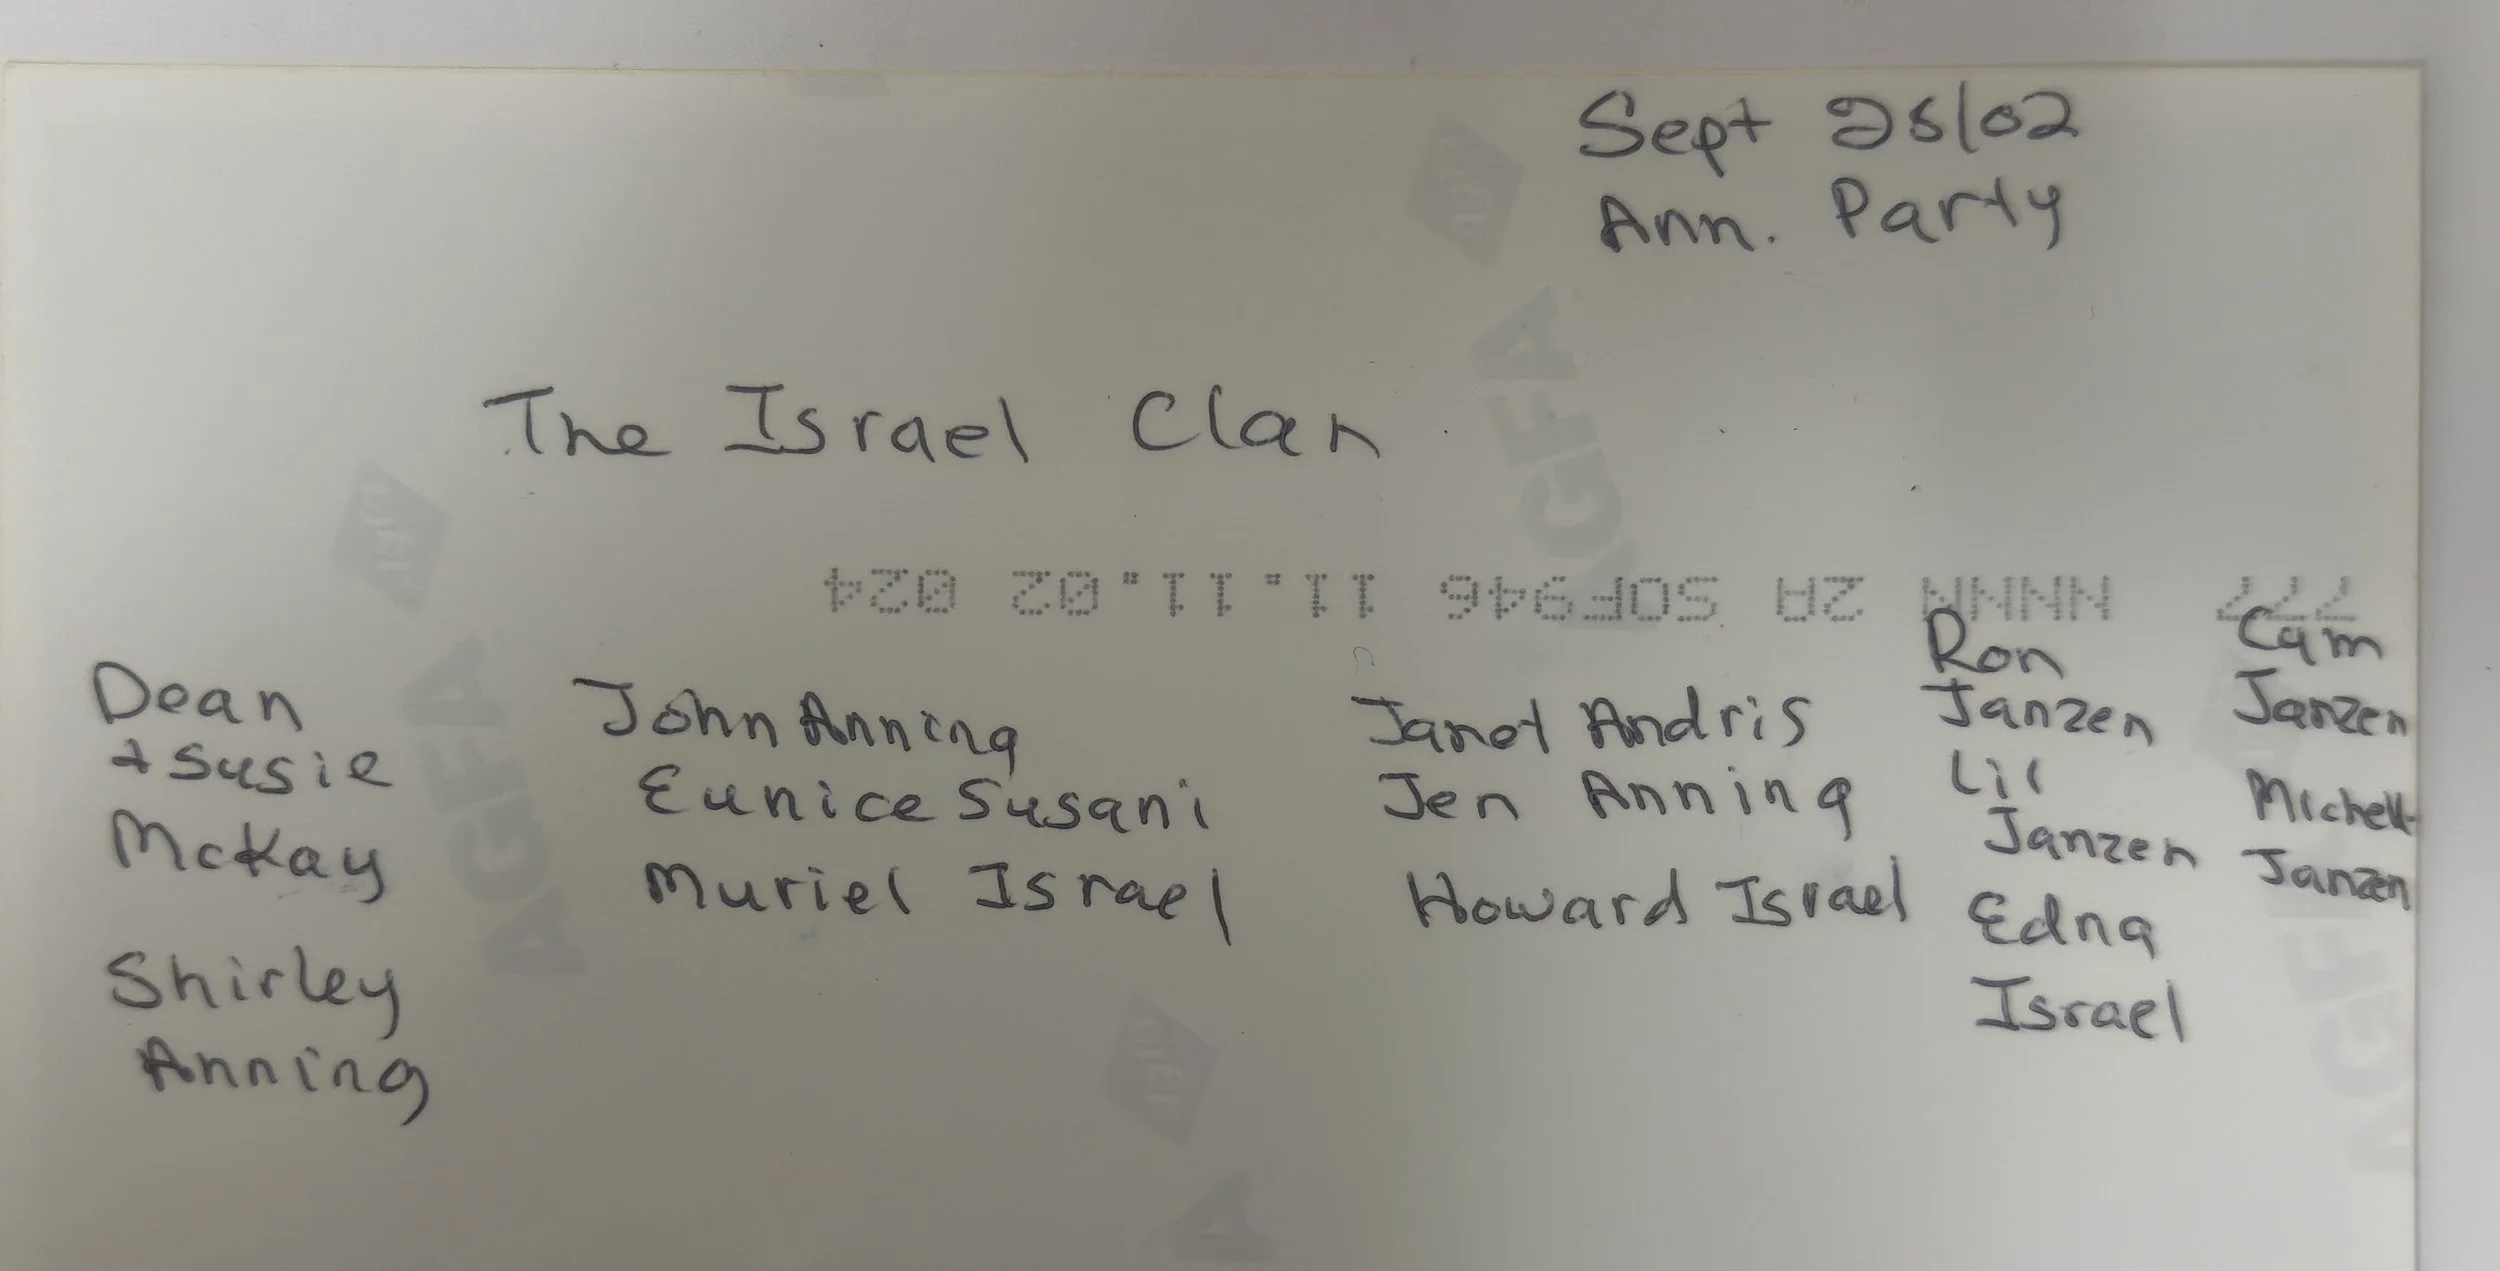 Sept 25/02
Ann. Party
The Israel Clan
Dean
+ Susie
McKay
Shirley
Anning
John Anning
Eunice Susani
Muriel Israel
Janet Andris
Jen Anning
Howard Israel
Ron
Janzen
Lil
Janzen
Edna
Israel
Cam
Janzen
Michell
Janzen
222 NNNN ZA SOF946 11.11.02 024
AGFA
AGFA
AGFA